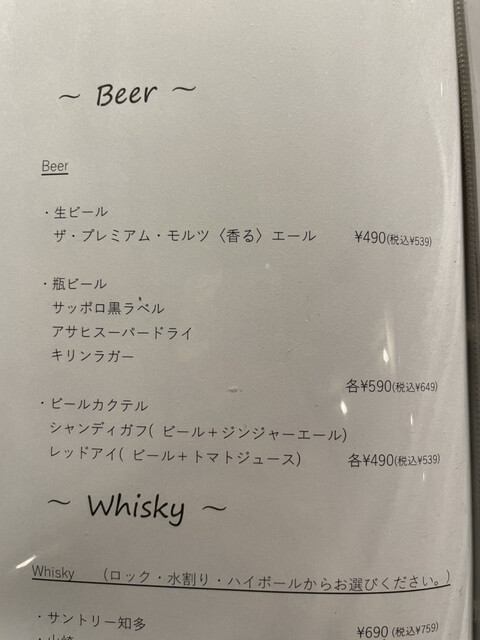 ～ Beer ～
Beer
・生ビール
ザ・プレミアム・モルツ〈香る〉エール ¥490(税込¥539)
・瓶ビール
サッポロ黒ラベル
アサヒスーパードライ
キリンラガー
各¥590(税込¥649)
・ビールカクテル
シャンディガフ( ビール＋ジンジャーエール)
レッドアイ( ビール＋トマトジュース) 各¥490(税込¥539)
～ Whisky ～
Whisky (ロック・水割り・ハイボールからお選びください。)
・サントリー知多
¥690(税込¥759)
・山崎